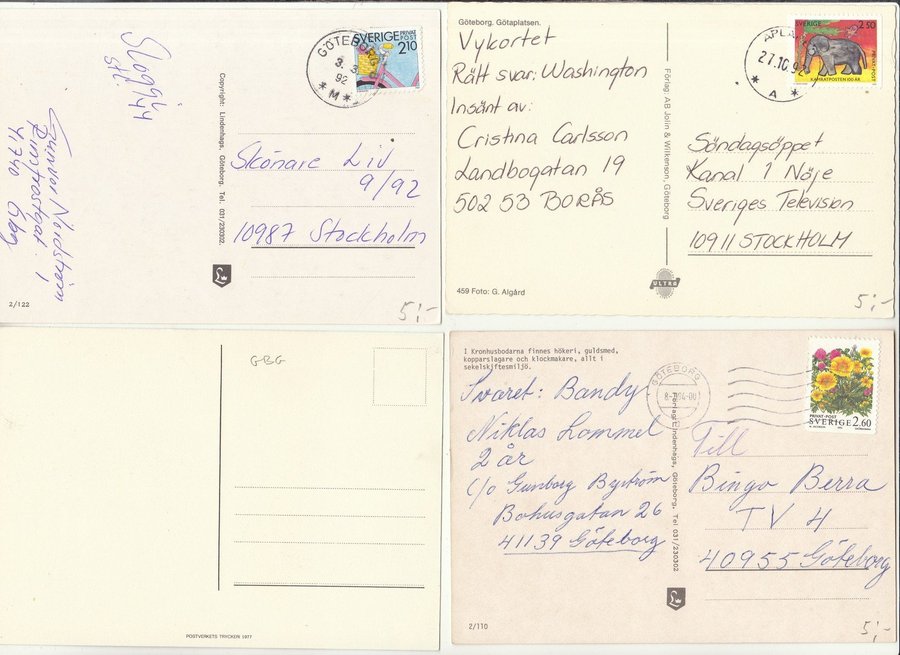 Sloggy
st.
Gunvor Nordström
41740 Gbg
GÖTEBORG
3. 3.
92
* M *
SVERIGE PRIVAT
POST
210
Copyright: Lindenhags, Göteborg. Tel. 031/230302.
Skönare Liv
9/92
10987 Stockholm
L
2/122
5:-
Göteborg. Götaplatsen.
Vykortet
Rätt svar: Washington
Insänt av:
Cristina Carlsson
Landbogatan 19
502 53 BORÅS
459 Foto: G. Algård
Förlag: AB Jolin & Wilkenson, Göteborg
ULTRA
27.10.92
* A *
SVERIGE 2 50
PRIVAT-POST
KAMRATPOSTEN 100 ÅR
Söndagsöppet
Kanal 1 Nöje
Sveriges Television
10911 STOCKHOLM
5:-
GBG
POSTVERKETS TRYCKERI 1977
I Kronhusbodarna finnes hökeri, guldsmed,
kopparslagare och klockmakare, allt i
sekelskiftesmiljö.
Svaret: Bandy
Niklas Lommel
2 år
c/o Gunborg Byström
Bohusgatan 26
41139 Göteborg
2/110
Förlag: Lindenhags, Göteborg. Tel 031/230302
L
GÖTEBORG
PRIVAT-POST
SVERIGE 2.60
Till
Bingo Berra
TV 4
40955 Göteborg
5:-